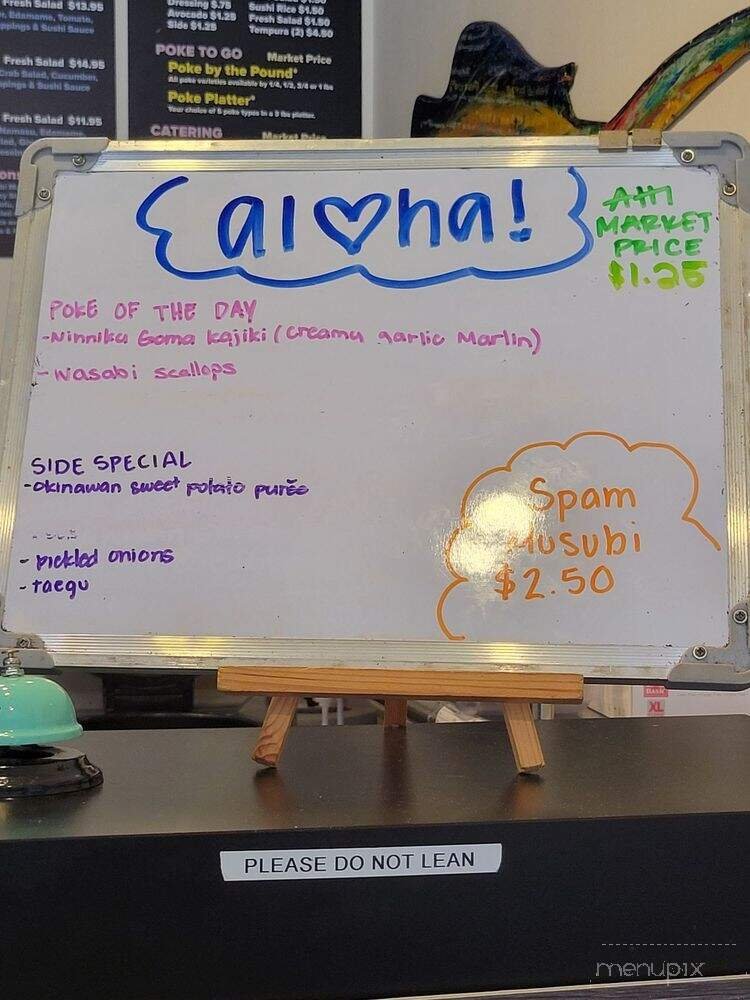 Fresh Salad $13.95
Edamame, Tomato,
ppings & Sushi Sauce
Fresh Salad $14.95
Crab Salad, Cucumber,
ppings & Sushi Sauce
Fresh Salad $11.95
Edamame,
Dressing $.75
Avocado $1.25
Side $1.25
Sushi Rice $1.50
Fresh Salad $1.50
Tempura (2) $4.50
POKE TO GO Market Price
Poke by the Pound*
All poke varieties available by 1/4, 1/2, 3/4 or 1 lbs
Poke Platter*
Your choice of 5 poke types in a 3 lbs platter.
CATERING Market Price
al♡ha!
AHI
MARKET
PRICE
$1.25
POKE OF THE DAY
-Ninniku Goma kajiki (creamy garlic Marlin)
-Wasabi scallops
SIDE SPECIAL
-okinawan sweet potato purée
- pickled onions
- taegu
Spam
Musubi
$2.50
BASIC
XL
PLEASE DO NOT LEAN
menupix